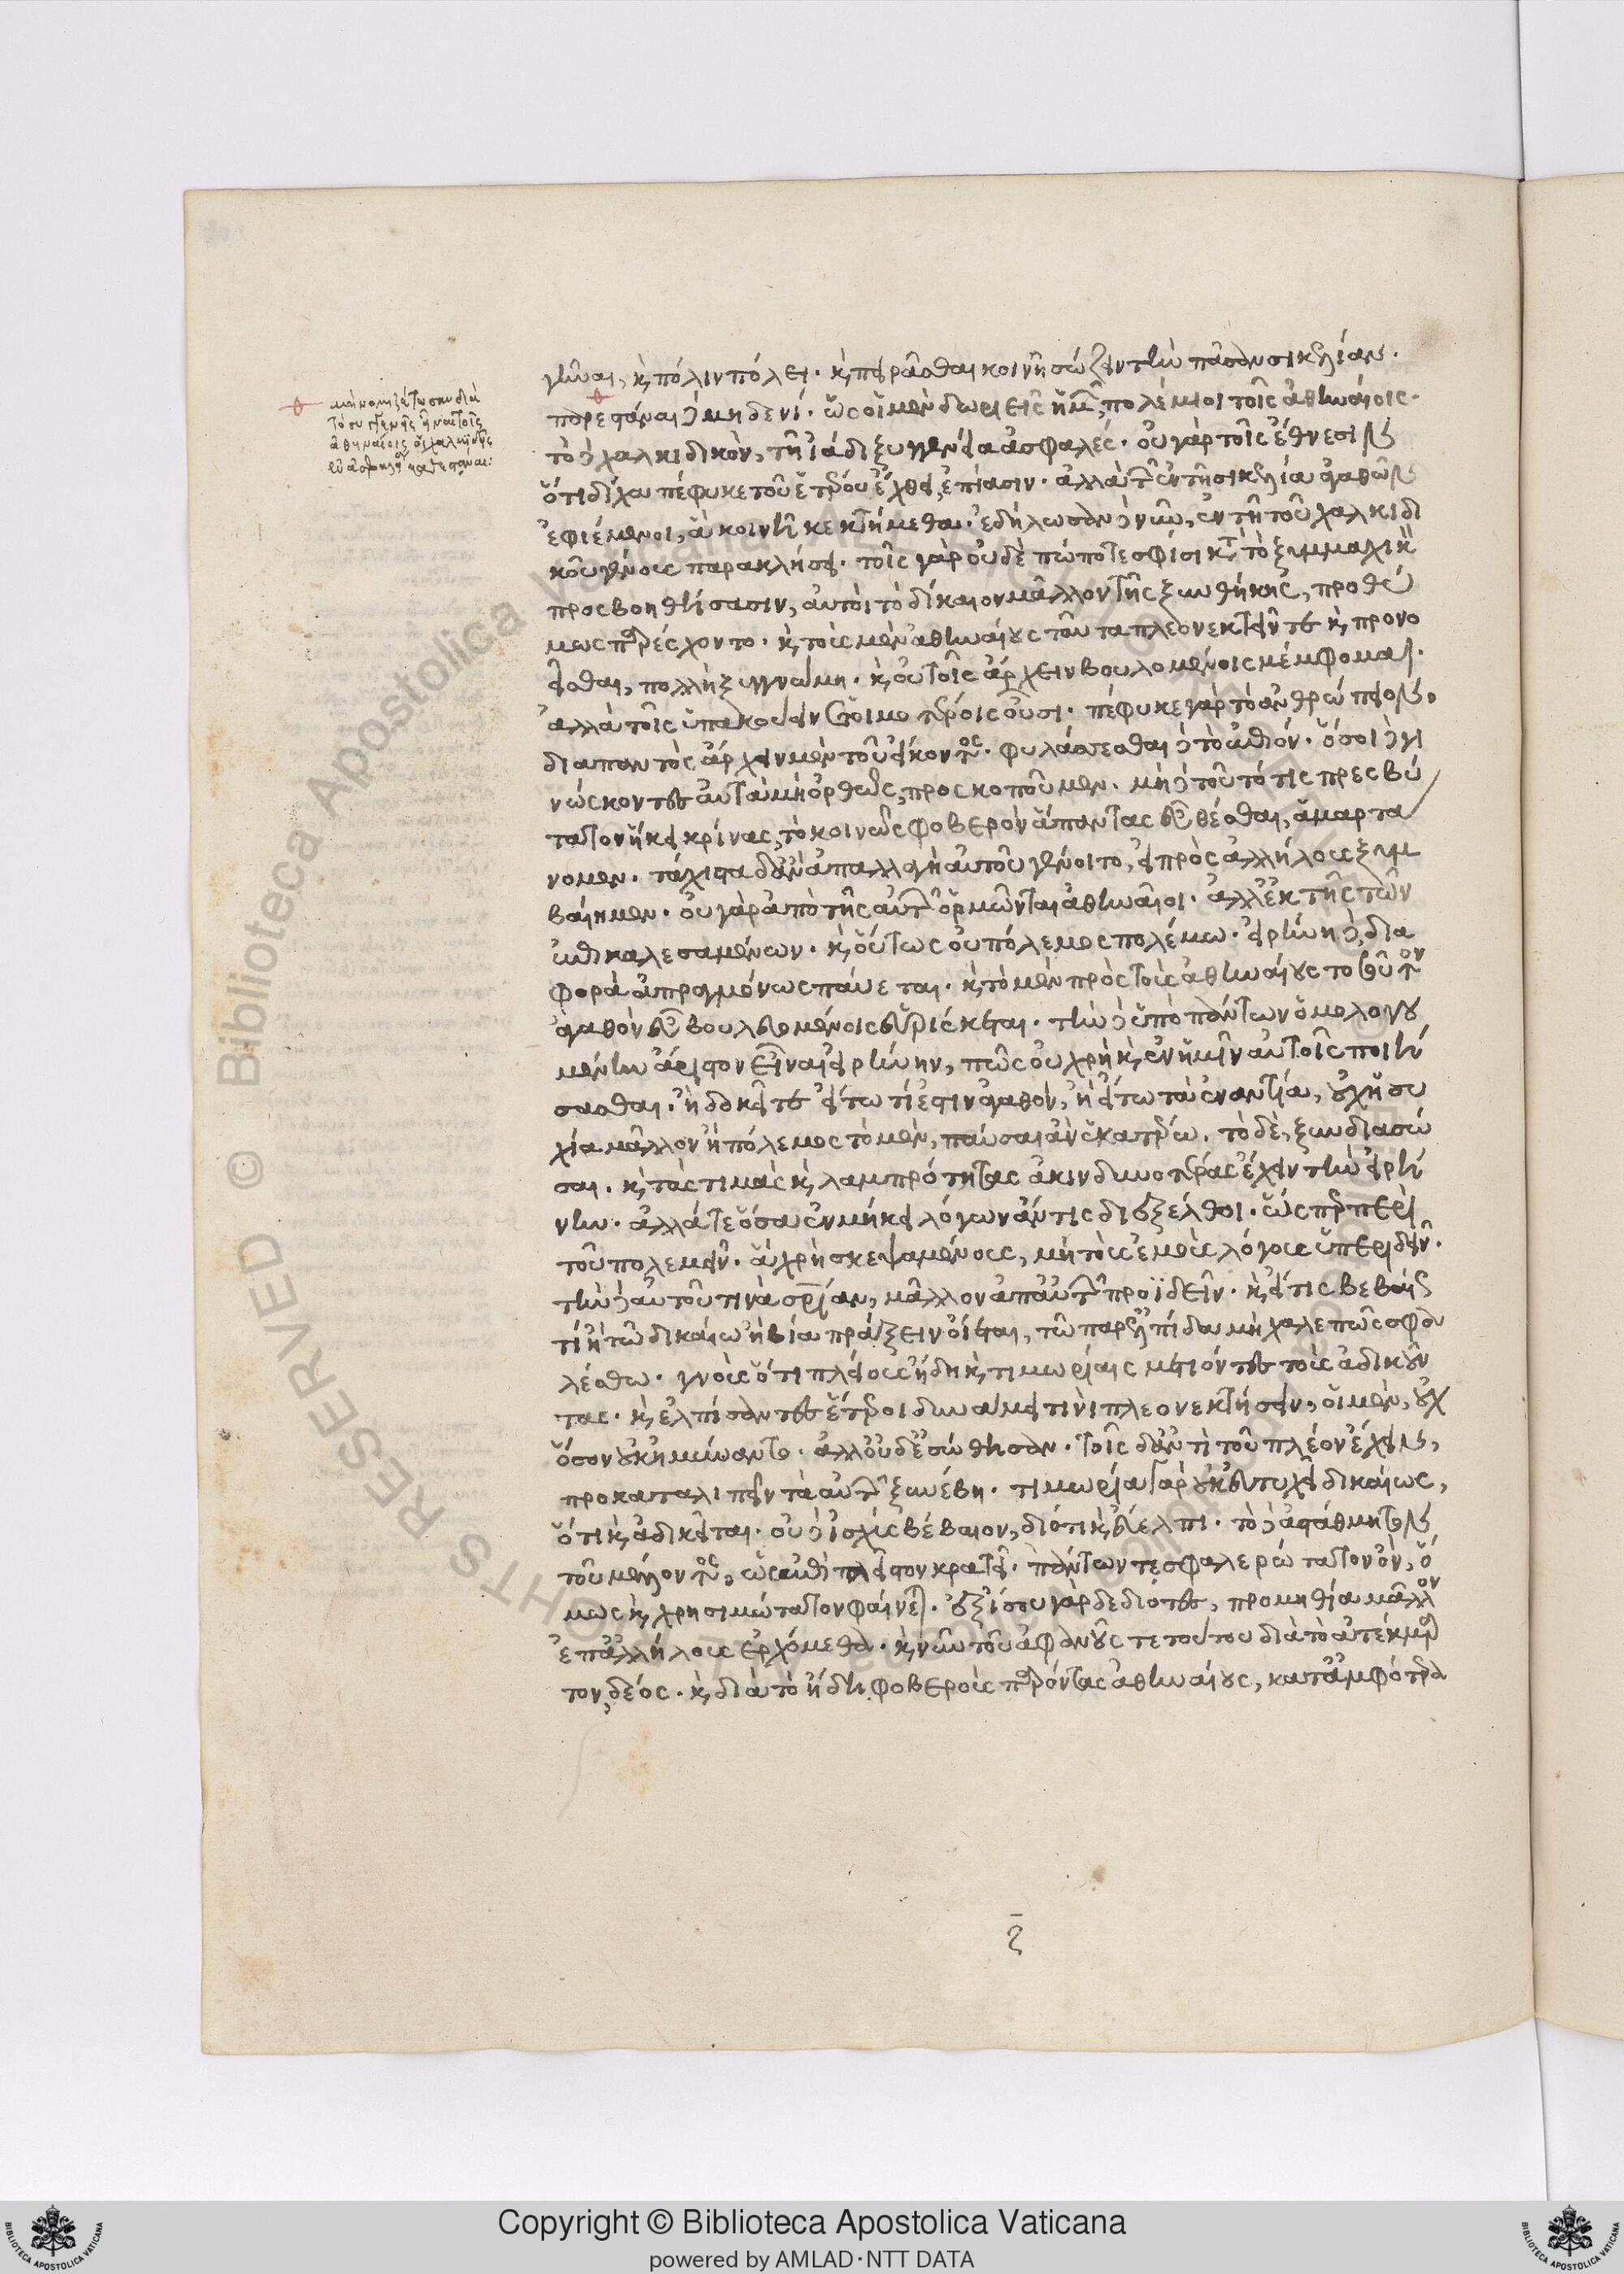 μὴ νομιζέτωσαν διὰ
τὸ συγγενεῖς εἶναι τοῖς
ἀθηναίοις οἱ χαλκιδεῖς
ἐν ἀσφαλεῖ καθεστάναι:
γῆναι, καὶ πόλιν πόλει. καὶ πειρᾶσθαι κοινῇ σώζειν τὴν πᾶσαν σικελίαν.
παρεστάναι δὲ μηδενί. ὡς οἱ μὲν δωριεῖς ἡμῶν, πολέμιοι τοῖς ἀθηναίοις.
τὸ δὲ χαλκιδικὸν, τῇ ἰάδι ξυγγενεία ἀσφαλές. οὐ γὰρ τοῖς ἔθνεσιν
ὅτι δίχα πέφυκε τοῦ ἑτέρου ἔχθει ἐπίασιν. ἀλλὰ τῶν ἐν τῇ σικελία ἀγαθῶν
ἐφιέμενοι, ἃ κοινῇ κεκτήμεθα. ἐδήλωσαν δὲ νῦν, ἐν τῇ τοῦ χαλκιδι
κοῦ γένους παρακλήσει. τοῖς γὰρ οὐδὲ πώποτε σφίσι κατὰ τὸ ξυμμαχικὸν
προσβοηθήσασιν, αὐτοὶ τὸ δίκαιον μᾶλλον τῆς ξυνθήκης, προθύ
μως παρέσχοντο. καὶ τοὺς μὲν ἀθηναίους ταῦτα πλεονεκτεῖν τε καὶ προνο
εῖσθαι, πολλὴ ξυγγνώμη. καὶ οὐ τοῖς ἄρχειν βουλομένοις μέμφομαι.
ἀλλὰ τοῖς ὑπακούειν ἑτοιμοτέροις οὖσι. πέφυκε γὰρ τὸ ἀνθρώπειον,
διαπαντὸς ἄρχειν μὲν τοῦ εἴκοντος. φυλάσσεσθαι δὲ τὸ ἐπιόν. ὅσοι δὲ γι
νώσκοντες αὐτὰ μὴ ὀρθῶς, προσκοποῦμεν. μὴ δὲ τοῦτό τις πρεσβύ
τατον ἥκει κρίνας, τὸ κοινῶς φοβερὸν ἅπαντας εὖ θέσθαι, ἁμαρτά
νομεν. τάχιστα δ' ἂν ἀπαλλαγὴ αὐτοῦ γένοιτο, εἰ πρὸς ἀλλήλους ξυμ
βαίημεν. οὐ γὰρ ἀπὸ τῆς αὐτῶν ὁρμῶνται ἀθηναῖοι. ἀλλ' ἐκ τῆς τῶν
ἐπικαλεσαμένων. καὶ οὕτως οὐ πόλεμος πολέμω. εἰρήνη δὲ δια
φορὰ ἀπραγμόνως παύεται. καὶ τὸ μὲν πρὸς τοὺς ἀθηναίους τοσοῦτον
ἀγαθὸν εὖ βουλευομένοις εὑρίσκεται. τὴν δὲ ὑπὸ πάντων ὁμολογου
μένην ἄριστον εἶναι εἰρήνην, πῶς οὐ χρὴ καὶ ἐν ἡμῖν αὐτοῖς ποιή
σασθαι. ἢ δοκεῖτε εἴ τώ τί ἐστιν ἀγαθὸν, ἢ εἴ τω τὰ ἐναντία, οὐχ ἡσυ
χία μᾶλλον ἢ πόλεμος τὸ μὲν, παῦσαι ἂν ἑκατέρω. τὸ δὲ, ξυνδιασώ
σαι. καὶ τὰς τιμὰς καὶ λαμπρότητας ἀκινδυνοτέρας ἔχειν τὴν εἰρή
νην. ἄλλά τε ὅσα ἐν μήκει λόγων ἄν τις διεξέλθοι. ὥσπερ περὶ
τοῦ πολεμεῖν. ἃ χρὴ σκεψαμένους, μὴ τοὺς ἐμοὺς λόγους ὑπεριδεῖν.
τὴν δὲ αὑτοῦ τινὰ σωτηρίαν, μᾶλλον ἀπ' αὐτῶν προϊδεῖν. καὶ εἴ τις βεβαίως
τί ἢ τῶ δικαίω ἢ βία πράξειν οἴεται, τῶ παρ' ἐλπίδα μὴ χαλεπῶς σφαλ
λέσθω. γνοὺς ὅτι πλείους ἤδη καὶ τιμωρίαις μετιόντες τοὺς ἀδικοῦν
τας. καὶ ἐλπίσαντες ἕτεροι δυνάμει τινὶ πλεονεκτήσειν, οἱ μὲν, οὐχ
ὅσον οὐκ ἠμύναντο. ἀλλ' οὐδ' ἐσώθησαν. τοῖς δ' ἀντὶ τοῦ πλέον ἔχειν,
προκαταλιπεῖν τὰ αὑτῶν ξυνέβη. τιμωρία γὰρ οὐκ εὐτυχεῖ δικαίως,
ὅτι καὶ ἀδικεῖται. οὐδὲ ἰσχὺς βέβαιον, διότι καὶ εὔελπι. τὸ δὲ ἀστάθμητον
τοῦ μέλλοντος, ὡς ἐπὶ πλεῖστον κρατεῖ. πάντων τε σφαλερώτατον ὂν, ὅ
μως καὶ χρησιμώτατον φαίνεται. ἐξίσου γὰρ δεδιότες, προμηθία μᾶλλον
ἐπ' ἀλλήλους ἐρχόμεθα. καὶ νῦν τοῦ ἀφανοῦς τε τούτου διὰ τὸ ἀτέκμαρ
τον, δέος. καὶ διὰ τὸ ἤδη φοβεροὺς παρόντας ἀθηναίους, κατ' ἀμφότερα
Copyright © Biblioteca Apostolica Vaticana
powered by AMLAD·NTT DATA